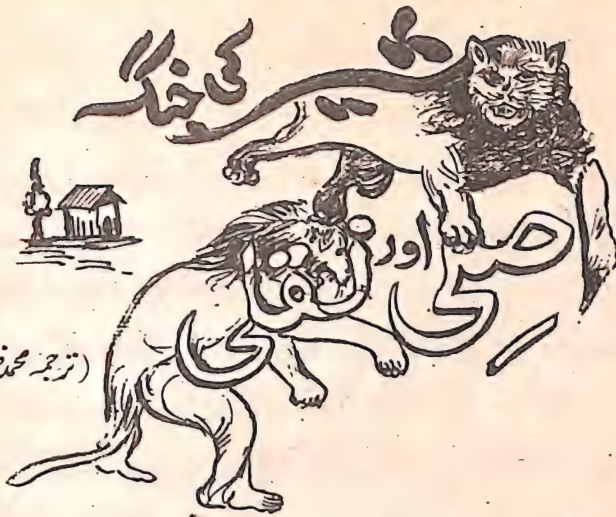 اصلی اور نقلی
شیر کی جنگ
(ترجمہ محمد